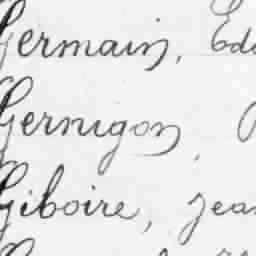 Germain, Edo
Gernigon,
Giboire, Jean